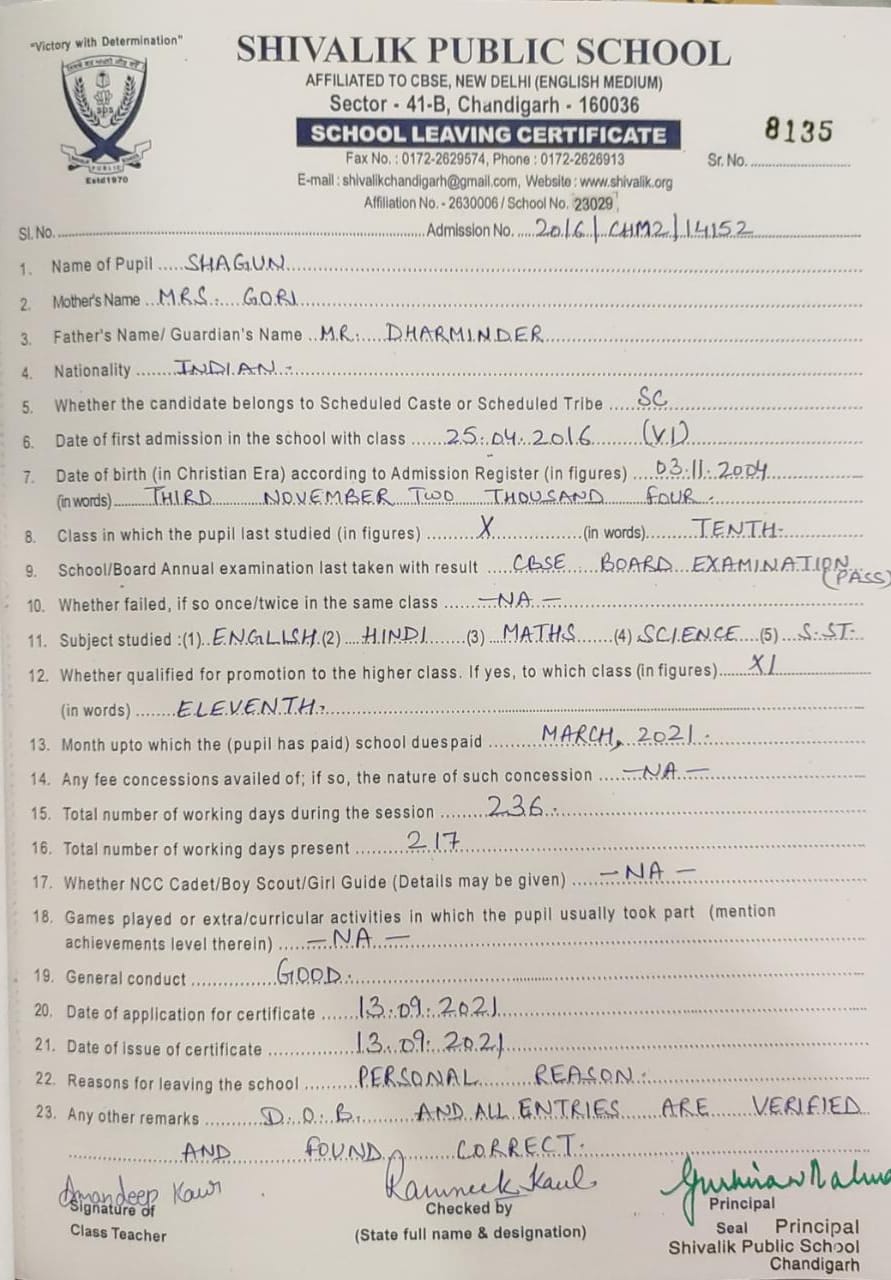 "Victory with Determination"
SHIVALIK PUBLIC SCHOOL
AFFILIATED TO CBSE, NEW DELHI (ENGLISH MEDIUM)
Sector - 41-B, Chandigarh - 160036
SCHOOL LEAVING CERTIFICATE
8135
Fax No. : 0172-2629574, Phone : 0172-2626913
Sr. No.
E-mail : shivalikchandigarh@gmail.com, Website : www.shivalik.org
Affiliation No. - 2630006 / School No. 23029
sps
PUBLIC
Estd1970
Sl. No. Admission No. 2016/CHM2/14152
1. Name of Pupil SHAGUN
2. Mother's Name MRS. GORI
3. Father's Name/ Guardian's Name MR. DHARMINDER
4. Nationality INDIAN.
5. Whether the candidate belongs to Scheduled Caste or Scheduled Tribe SC
6. Date of first admission in the school with class 25.04.2016 (VI)
7. Date of birth (in Christian Era) according to Admission Register (in figures) 03.11.2004
(in words) THIRD NOVEMBER TWO THOUSAND FOUR.
8. Class in which the pupil last studied (in figures) X (in words) TENTH.
9. School/Board Annual examination last taken with result CBSE BOARD EXAMINATION
(PASS)
10. Whether failed, if so once/twice in the same class —NA—
11. Subject studied :(1) ENGLISH (2) HINDI (3) MATHS (4) SCIENCE (5) S.ST.
12. Whether qualified for promotion to the higher class. If yes, to which class (in figures) XI
(in words) ELEVENTH.
13. Month upto which the (pupil has paid) school duespaid MARCH, 2021.
14. Any fee concessions availed of; if so, the nature of such concession —NA—
15. Total number of working days during the session 236.
16. Total number of working days present 217
17. Whether NCC Cadet/Boy Scout/Girl Guide (Details may be given) —NA—
18. Games played or extra/curricular activities in which the pupil usually took part (mention
achievements level therein) —NA—
19. General conduct GOOD.
20. Date of application for certificate 13.09.2021
21. Date of issue of certificate 13.09.2021
22. Reasons for leaving the school PERSONAL REASON.
23. Any other remarks D.O.B. AND ALL ENTRIES ARE VERIFIED
AND FOUND CORRECT.
Amandeep Kaur
Ramneek Kaul
Signature of
Class Teacher
Checked by
(State full name & designation)
Principal
Seal Principal
Shivalik Public School
Chandigarh